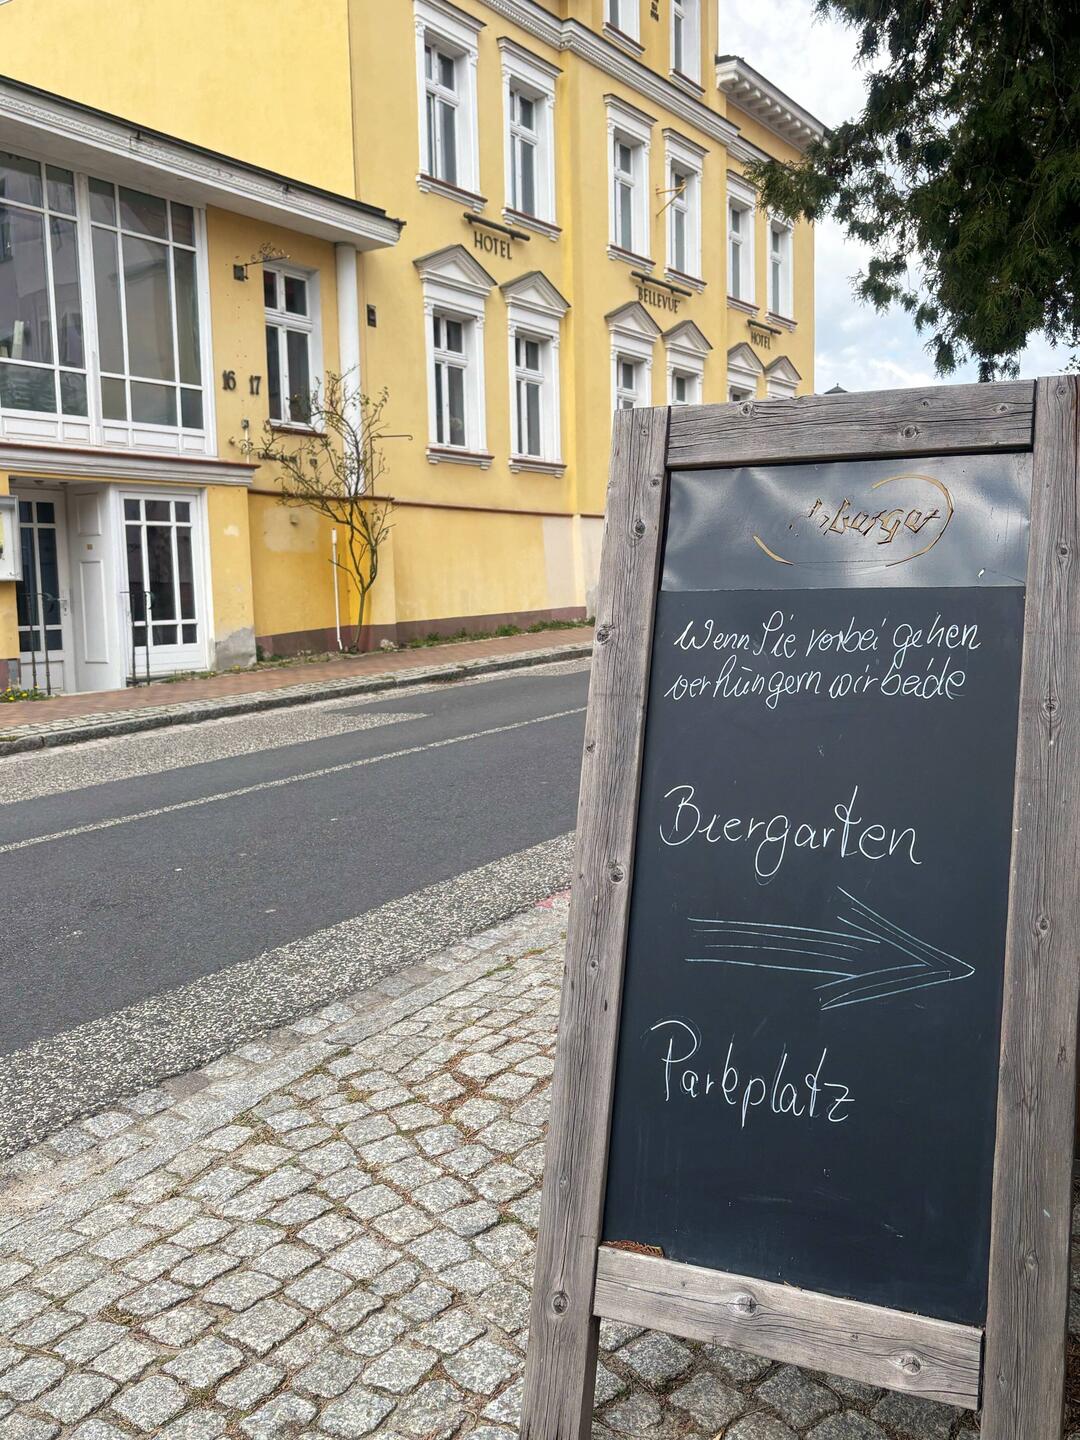 HOTEL
BELLEVUE
HOTEL
16 17
Wenn Sie vorbei gehen
verhüngern wir beide
Biergarten
Parkplatz